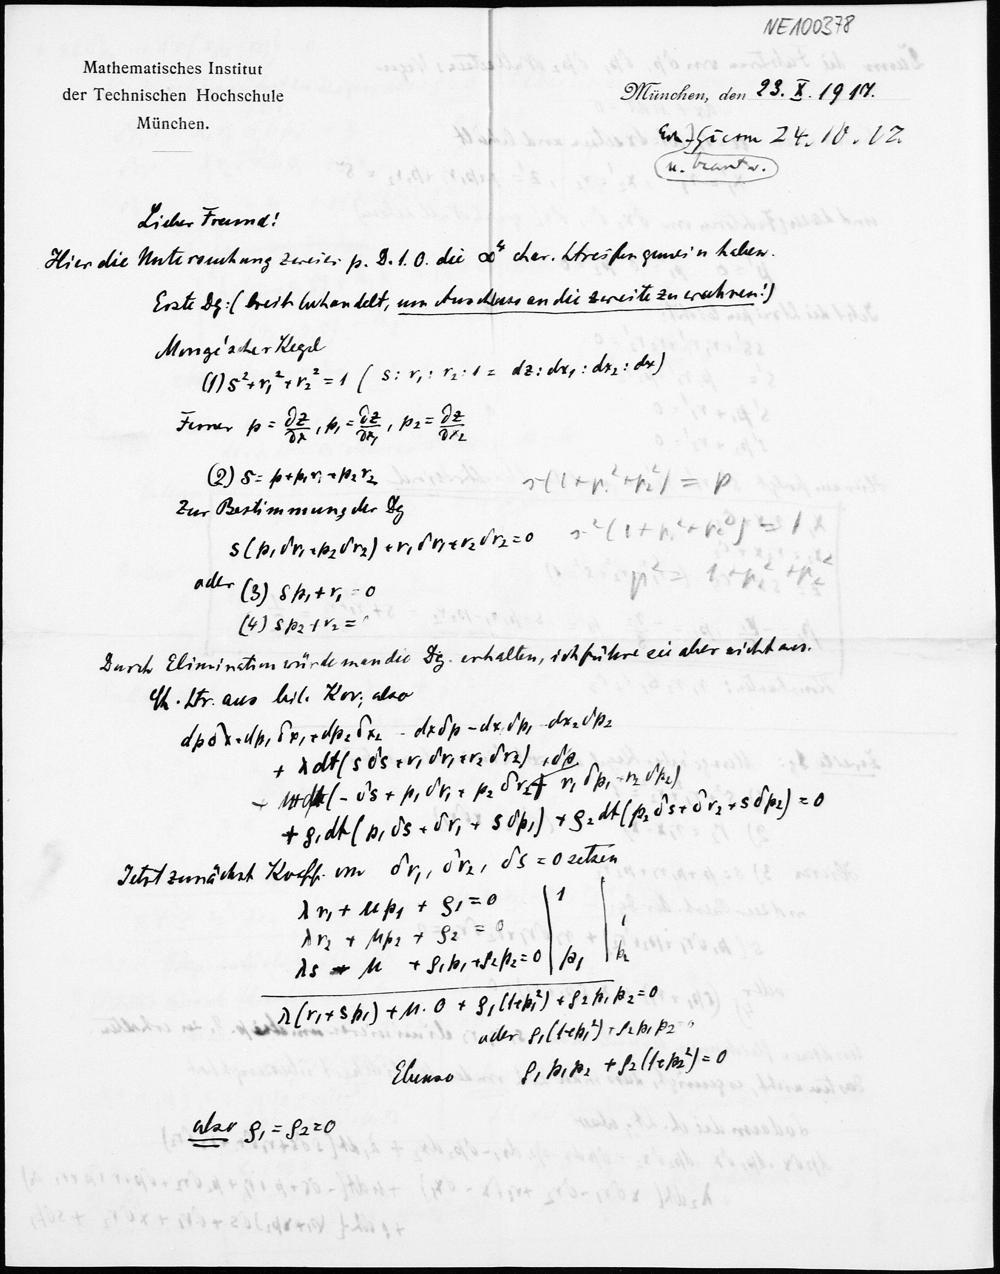 NE100378
Mathematisches Institut
der Technischen Hochschule
München.
München, den 23. X. 1917.
24. 10. 17.
u. beantw.
Lieber Freund!
Hier die Untersuchung zweier p. D. 1. O. die ∞⁴ char. Streifen gemein haben.
Erste Dg: ( breit behandelt, um Anschluss an die zweite zu wahren!)
Monge'scher Kegel
(1) s² + r₁² + r₂² = 1 ( s : r₁ : r₂ : 1 = dz : dx₁ : dx₂ : dx)
Ferner p = ∂z/∂x , p₁ = ∂z/∂x₁ , p₂ = ∂z/∂x₂
(2) s = p + p₁r₁ + p₂r₂
s(1 + p₁² + p₂²) = p
Zur Bestimmung der Dg
s²(1 + p₁² + p₂²) = 1
s(p₁δr₁ + p₂δr₂) + r₁δr₁ + r₂δr₂ = 0
p² = 1 + p₁² + p₂²
oder (3) sp₁ + r₁ = 0
(4) sp₂ + r₂ = 0
Durch Elimination würde man die Dg. erhalten, ich führe sie aber nicht aus.
Ch. Str. aus bil. Kov; also
dpδx + dp₁δx₁ + dp₂δx₂ - dxδp - dx₁δp₁ - dx₂δp₂
+ λdt(sδs + r₁δr₁ + r₂δr₂) + δp
+ μdt(- δs + p₁δr₁ + p₂δr₂ + r₁δp₁ + r₂δp₂)
+ ρ₁dt(p₁δs + δr₁ + sδp₁) + ρ₂dt(p₂δs + δr₂ + sδp₂) = 0
Jetzt zunächst Koeff. von δr₁, δr₂, δs = 0 setzen
λr₁ + μp₁ + ρ₁ = 0 | 1 |
λr₂ + μp₂ + ρ₂ = 0 | | 1
λs - μ + ρ₁p₁ + ρ₂p₂ = 0 | p₁ | p₂
λ(r₁ + sp₁) + μ·0 + ρ₁(1+p₁²) + ρ₂p₁p₂ = 0
oder ρ₁(1+p₁²) + ρ₂p₁p₂ = 0
Ebenso ρ₁p₁p₂ + ρ₂(1+p₂²) = 0
also ρ₁ = ρ₂ = 0